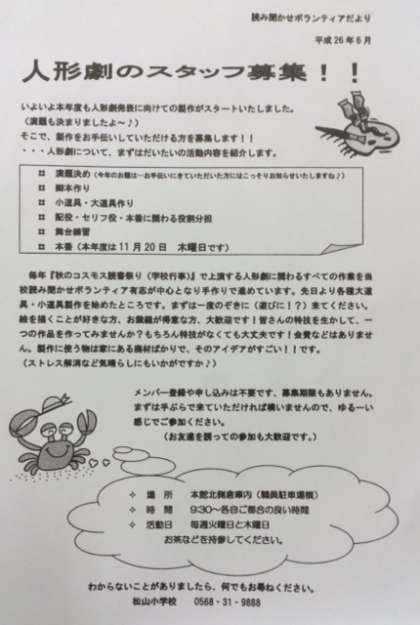 読み聞かせボランティアだより
平成26年6月
人形劇のスタッフ募集！！
いよいよ本年度も人形劇発表に向けての製作がスタートいたしました。
（演題も決まりましたよ～♪）
そこで、製作をお手伝いしていただける方を募集します！！
・・・人形劇について、まずはだいたいの活動内容を紹介します。
演題決め（今年のお題は…お手伝いにきていただいた方にはこっそりお知らせいたしますね♪）
脚本作り
小道具・大道具作り
配役・セリフ役・本番に関わる役割分担
舞台練習
本番（本年度は11月20日　木曜日です）
毎年『秋のコスモス読書祭り（学校行事）』で上演する人形劇に関わるすべての作業を当
校読み聞かせボランティア有志が中心となり手作りで進めています。先日より各種大道
具・小道具製作を始めたところです。まずは一度のぞきに（遊びに！？）来てください。
絵を描くことが好きな方、お裁縫が得意な方、大歓迎です！皆さんの特技を生かして、一
つの作品を作ってみませんか？もちろん特技がなくても大丈夫です！会費などはありませ
ん。製作に使う物は家にある廃材ばかりで、そのアイデアがすごい！！です。
（ストレス解消など気晴らしにもいかがですか♪）
メンバー登録や申し込みは不要です、募集期限もありません。
まずは手ぶらで来ていただければ構いませんので、ゆる～い
感じでご参加ください。
（お友達を誘っての参加も大歓迎です。）
場　所　本館北側倉庫内（職員駐車場横）
時　間　9:30～各自ご都合の良い時間
活動日　毎週火曜日と木曜日
お茶などを持参してください。
わからないことがありましたら、何でもお尋ねください。
松山小学校　0568-31-9888